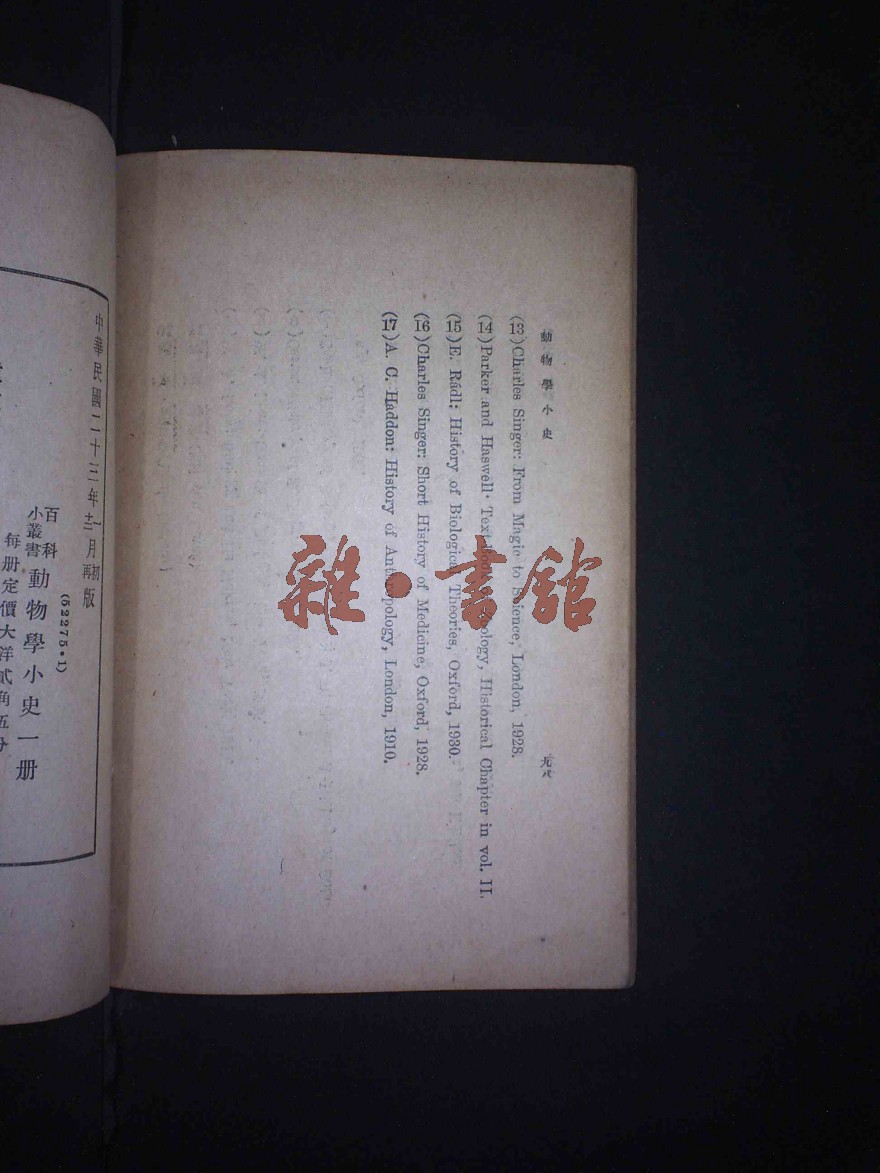 動物學小史
九八
(13)Charles Singer: From Magic to Science, London, 1928.
(14)Parker and Haswell· Text-book of Zoology, Historical Chapter in vol. II,
(15)E. Rádl: History of Biological Theories, Oxford, 1930.
(16)Charles Singer: Short History of Medicine, Oxford, 1928.
(17)A. C. Haddon: History of Anthropology, London, 1910.
雜·書館
中華民國二十三年
月
初
再
版
(52275·1)
百科
小叢書
動物學小史一册
每册定價大洋貳角五分